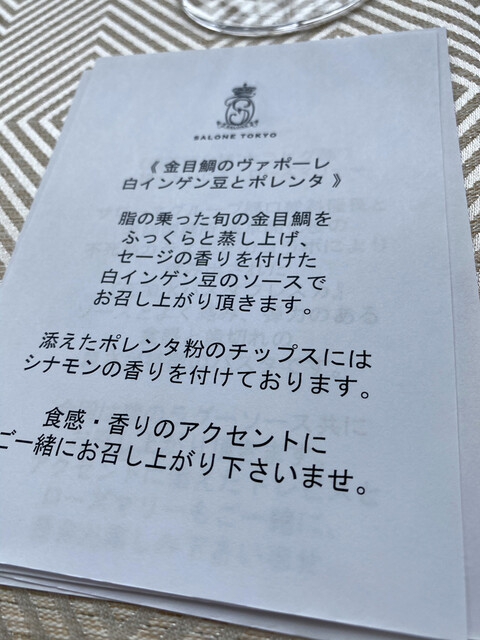 SALONE TOKYO
《 金目鯛のヴァポーレ
白インゲン豆とポレンタ 》
脂の乗った旬の金目鯛を
ふっくらと蒸し上げ、
セージの香りを付けた
白インゲン豆のソースで
お召し上がり頂きます。
添えたポレンタ粉のチップスには
シナモンの香りを付けております。
食感・香りのアクセントに
ご一緒にお召し上がり下さいませ。